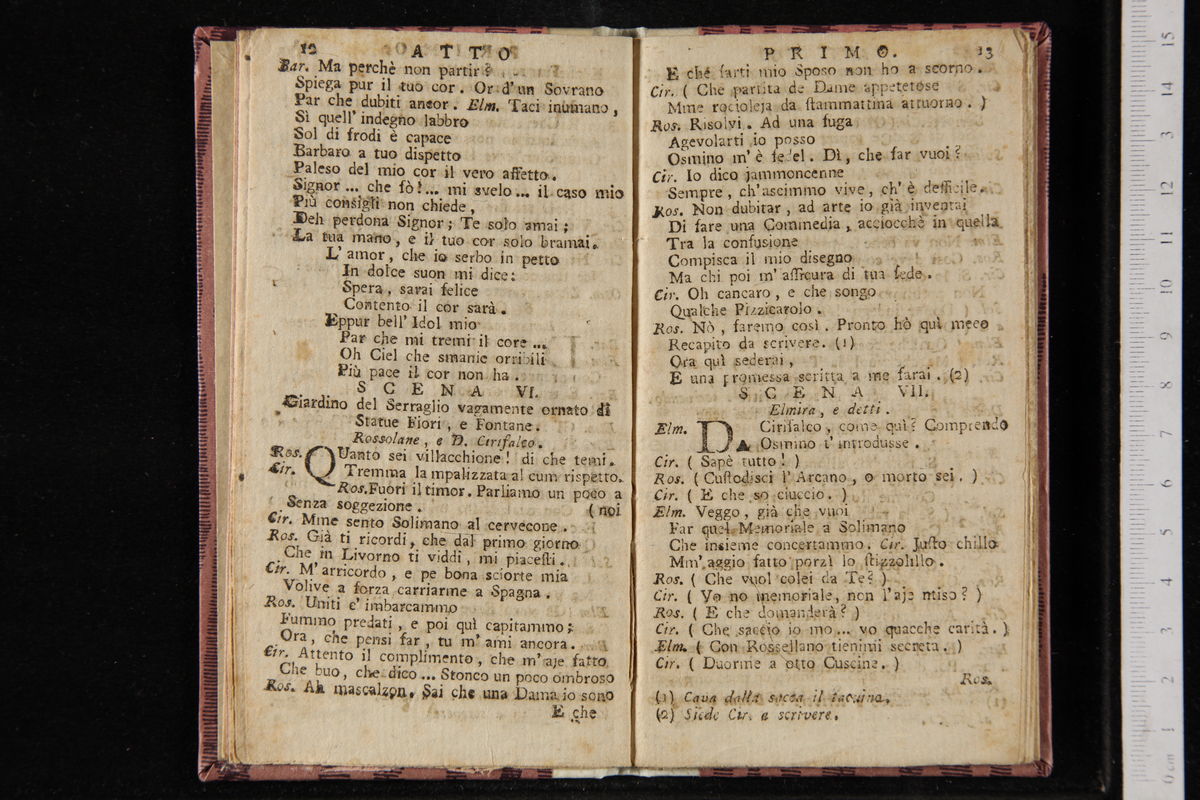 12 ATTO
Bar. Ma perchè non partir?
Spiega pur il tuo cor. Or d'un Sovrano
Par che dubiti ancor. Elm. Taci inumano,
Sì quell' indegno labbro
Sol di frodi è capace
Barbaro a tuo dispetto
Paleso del mio cor il vero affetto.
Signor ... che fò!... mi svelo ... il caso mio
Più consigli non chiede,
Deh perdona Signor; Te solo amai;
La tua mano, e il tuo cor solo bramai.
L' amor, che io serbo in petto
In dolce suon mi dice:
Spera, sarai felice
Contento il cor sarà.
Eppur bell' Idol mio
Par che mi tremi il core ...
Oh Ciel che smanie orribili
Più pace il cor non ha.
SCENA VI.
Giardino del Serraglio vagamente ornato di
Statue Fiori, e Fontane.
Rossolane, e D. Cirifalco.
Ros. QUanto sei villacchione! di che temi.
Cir. Tremma la mpalizzata al cum rispetto.
Ros. Fuori il timor. Parliamo un poco a
Senza soggezione. (noi
Cir. Mme sento Solimano al cervecone.
Ros. Già ti ricordi, che dal primo giorno
Che in Livorno ti viddi, mi piacesti.
Cir. M' arricordo, e pe bona sciorte mia
Volive a forza carriarme a Spagna.
Ros. Uniti c' imbarcammo
Fummo predati, e poi quì capitammo;
Ora, che pensi far, tu m' ami ancora.
Cir. Attento il complimento, che m' aje fatto
Che buo, che dico ... Stonco un poco ombroso
Ros. Ah mascalzon. Sai che una Dama io sono
E che
PRIMO. 13
E chè farti mio Sposo non ho a scorno.
Cir. ( Che partita de Dame appetetose
Mme rocioleja da stammattina attuorno. )
Ros. Risolvi. Ad una fuga
Agevolarti io posso
Osmino m' è fedel. Dì, che far vuoi?
Cir. Io dico jammoncenne
Sempre, ch' ascimmo vive, ch' è defficile.
Ros. Non dubitar, ad arte io già inventai
Di fare una Commedia, acciocchè in quella
Tra la confusione
Compisca il mio disegno
Ma chi poi m' assicura di tua fede.
Cir. Oh cancaro, e che songo
Qualche Pizzicarolo.
Ros. Nò, faremo così. Pronto hò quì meco
Recapito da scrivere. (1)
Ora quì sederai,
E una promessa scritta a me farai. (2)
SCENA VII.
Elmira, e detti.
Elm. DA Cirifalco, come quì? Comprendo
Osmino t' introdusse.
Cir. ( Sapè tutto! )
Ros. ( Custodisci l' Arcano, o morto sei. )
Cir. ( E che so ciuccio. )
Elm. Veggo, già che vuoi
Far quel Memoriale a Solimano
Che insieme concertammo. Cir. Justo chillo
Mm' aggio fatto porzì lo stizzolillo.
Ros. ( Che vuol colei da Te? )
Cir. ( Vo no memoriale, non l' aje ntiso? )
Ros. ( E che domanderà? )
Cir. ( Che saccio io mo ... vo quacche carità. )
Elm. ( Con Rossellano tienimi secreta. )
Cir. ( Duorme a otto Cuscine. )
Ros.
(1) Cava dalla sacca il taccuino.
(2) Siede Cir. a scrivere.
0 cm 1 2 3 4 5 6 7 8 9 10 11 12 13 14 15